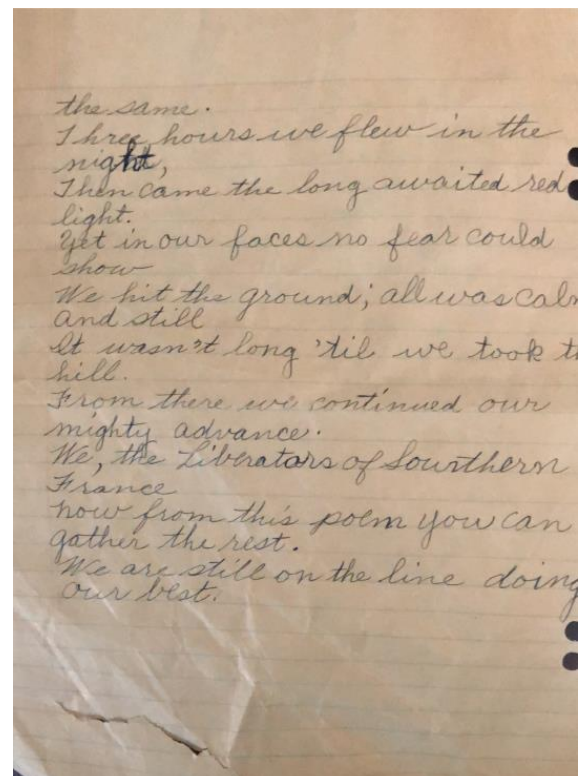 the same.
Three hours we flew in the
night,
Then came the long awaited red
light.
Yet in our faces no fear could
show
We hit the ground; all was calm
and still
It wasn't long 'til we took th
hill.
From there we continued our
mighty advance.
We, the Liberators of Sourthern
France
now from this poem you can
gather the rest.
We are still on the line doing
our best.